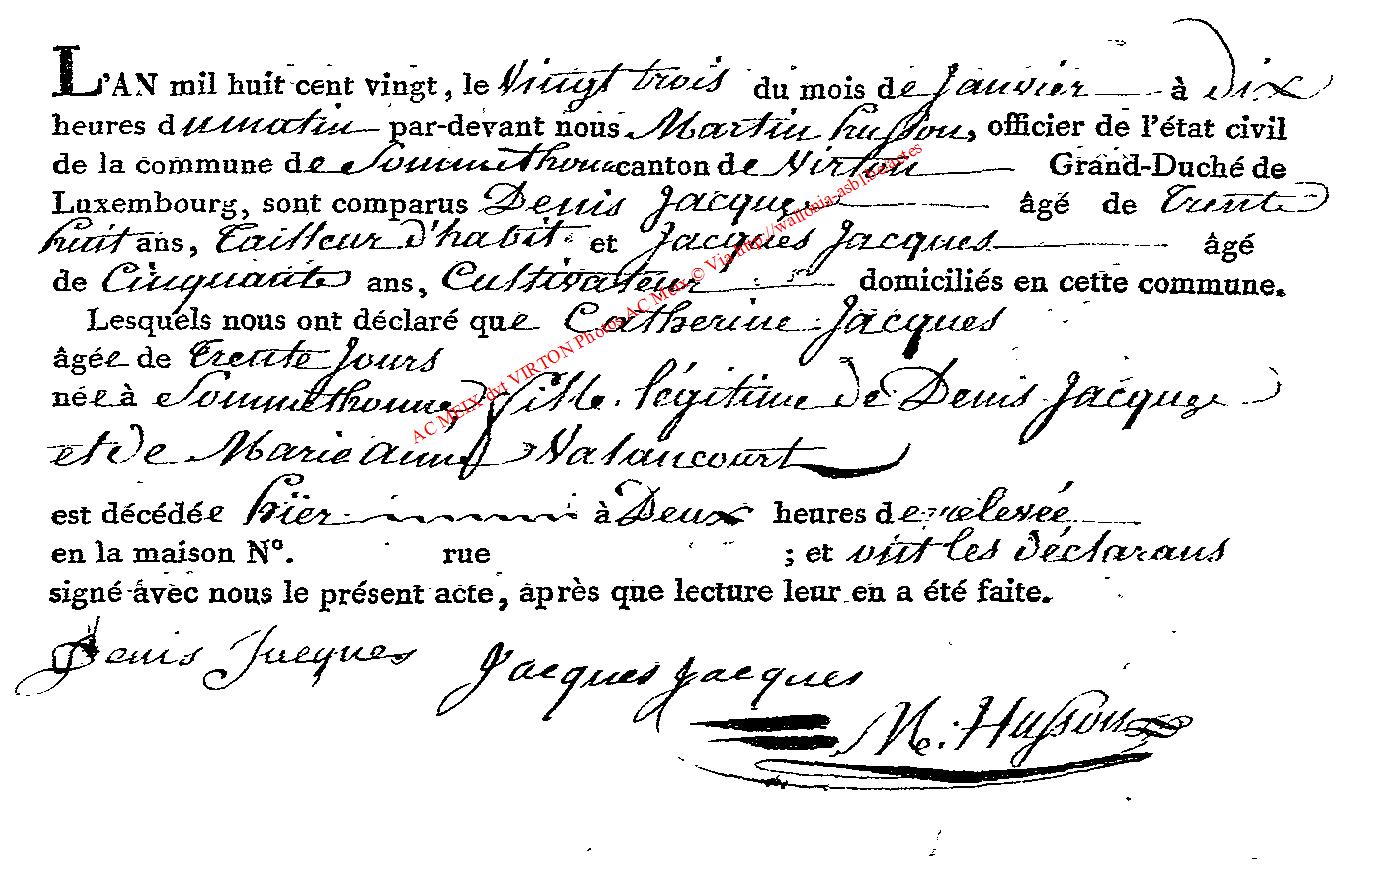 L'AN mil huit cent vingt, le Vingt trois du mois de Janvier à Dix
heures du matin par-devant nous Martin husson, officier de l'état civil
de la commune de Sommethonne canton de Virton Grand-Duché de
Luxembourg, sont comparus Denis Jacques âgé de Trente
huit ans, Tailleur d'habit et Jacques Jacques âgé
de Cinquante ans, Cultivateur domiciliés en cette commune.
Lesquels nous ont déclaré que Catherine Jacques
âgée de Trente Jours
née à Sommethonne, fille légitime de Denis Jacques
et de Marie anne Valancourt
est décédée hier à Deux heures de relevée
en la maison N°. rue ; et ont les déclarans
signé avec nous le présent acte, après que lecture leur en a été faite.
Denis Jacques Jacques Jacques
M. Husson
AC MEIX dvt VIRTON Photos AC Meix © Via http://wallonia-asbl.be/actes